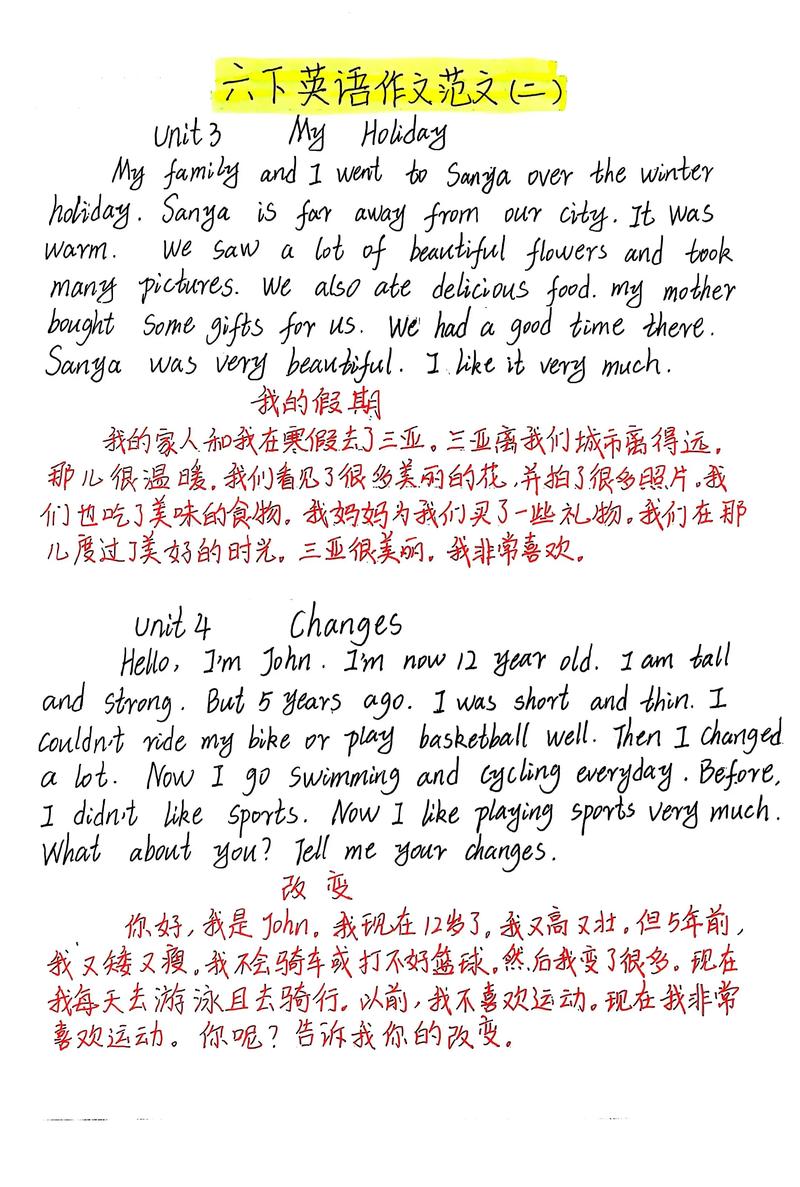 六下英语作文范文(二)
Unit 3 My Holiday
My family and I went to Sanya over the winter
holiday. Sanya is far away from our city. It was
warm. We saw a lot of beautiful flowers and took
many pictures. We also ate delicious food. my mother
bought some gifts for us. We had a good time there.
Sanya was very beautiful. I like it very much.
我的假期
我的家人和我在寒假去了三亚。三亚离我们城市离得远。
那儿很温暖。我们看见了很多美丽的花,并拍了很多照片。我
们也吃了美味的食物。我妈妈为我们买了一些礼物。我们在那
儿度过了美好的时光。三亚很美丽。我非常喜欢。
Unit 4 Changes
Hello, I'm John. I'm now 12 year old. I am tall
and strong. But 5 years ago. I was short and thin. I
couldn't ride my bike or play basketball well. Then I changed
a lot. Now I go swimming and cycling everyday. Before,
I didn't like sports. Now I like playing sports very much.
What about you? Tell me your changes.
改变
你好,我是John。我现在12岁了。我又高又壮。但5年前,
我又矮又瘦。我不会骑车或打不好篮球。然后我变了很多。现在
我每天去游泳且去骑行。以前,我不喜欢运动。现在我非常
喜欢运动。你呢?告诉我你的改变。